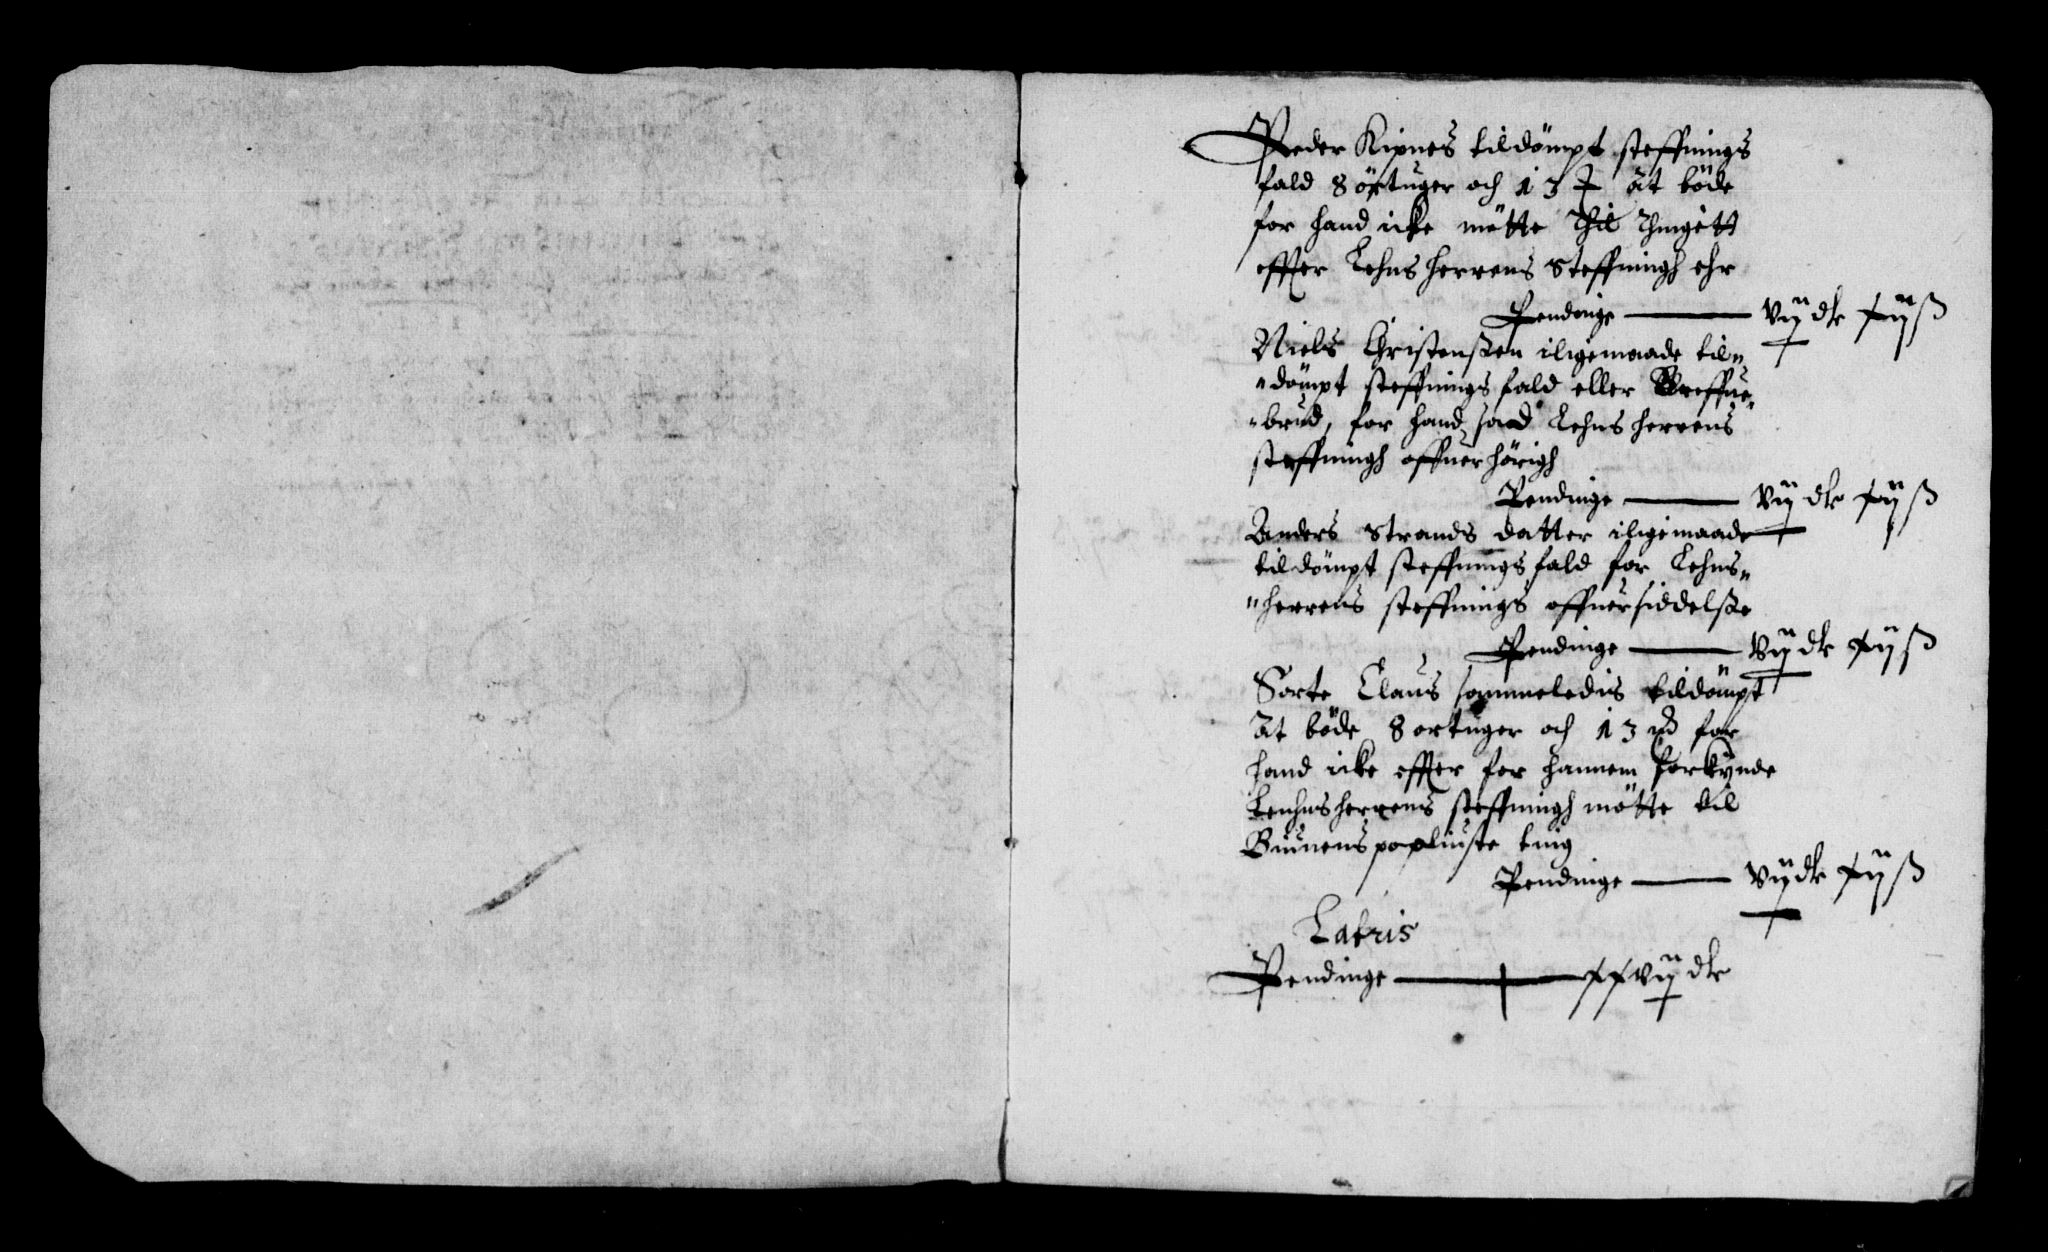 Peder Kipnes tildömpt steffnings
fald 8 örtuger och 13 at böde
for hand icke mötte Thil Thingett
effter Lehns herrens Steffningh ehr
Pendinge vij dlr xij ß
Niels Christenßen iligemaade til„
„dömpt steffnings fald eller Breffue„
„brud, for hand sad Lehns herrens
steffningh offuerhörigh
Pendinge vij dlr xij ß
Anders Strands datter iligemaade
tildömpt steffnings fald for Lehns„
„herrens steffnings offuersiddelße
Pendinge vij dlr xij ß
Sorte Claus sammeledis tildömpt
At böde 8 ortuger och 13 for
hand icke effter for hannem forkynde
Lenhsherrens steffningh mötte til
ting
Pendinge vij dlr xij ß
Latris
Pendinge xxvij dlr